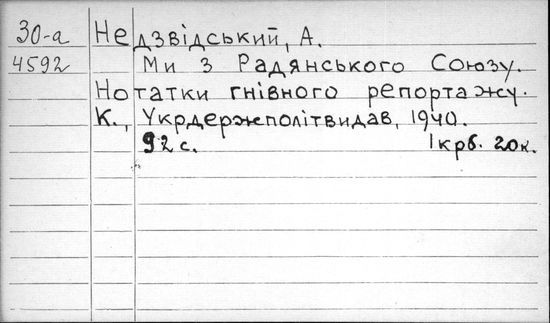 30-а Недзвідський, А.
4592 Ми з Радянського Союзу.
Нотатки гнівного репортажу.
К., Укрдержполітвидав, 1940.
92 с. 1 крб. 20 к.